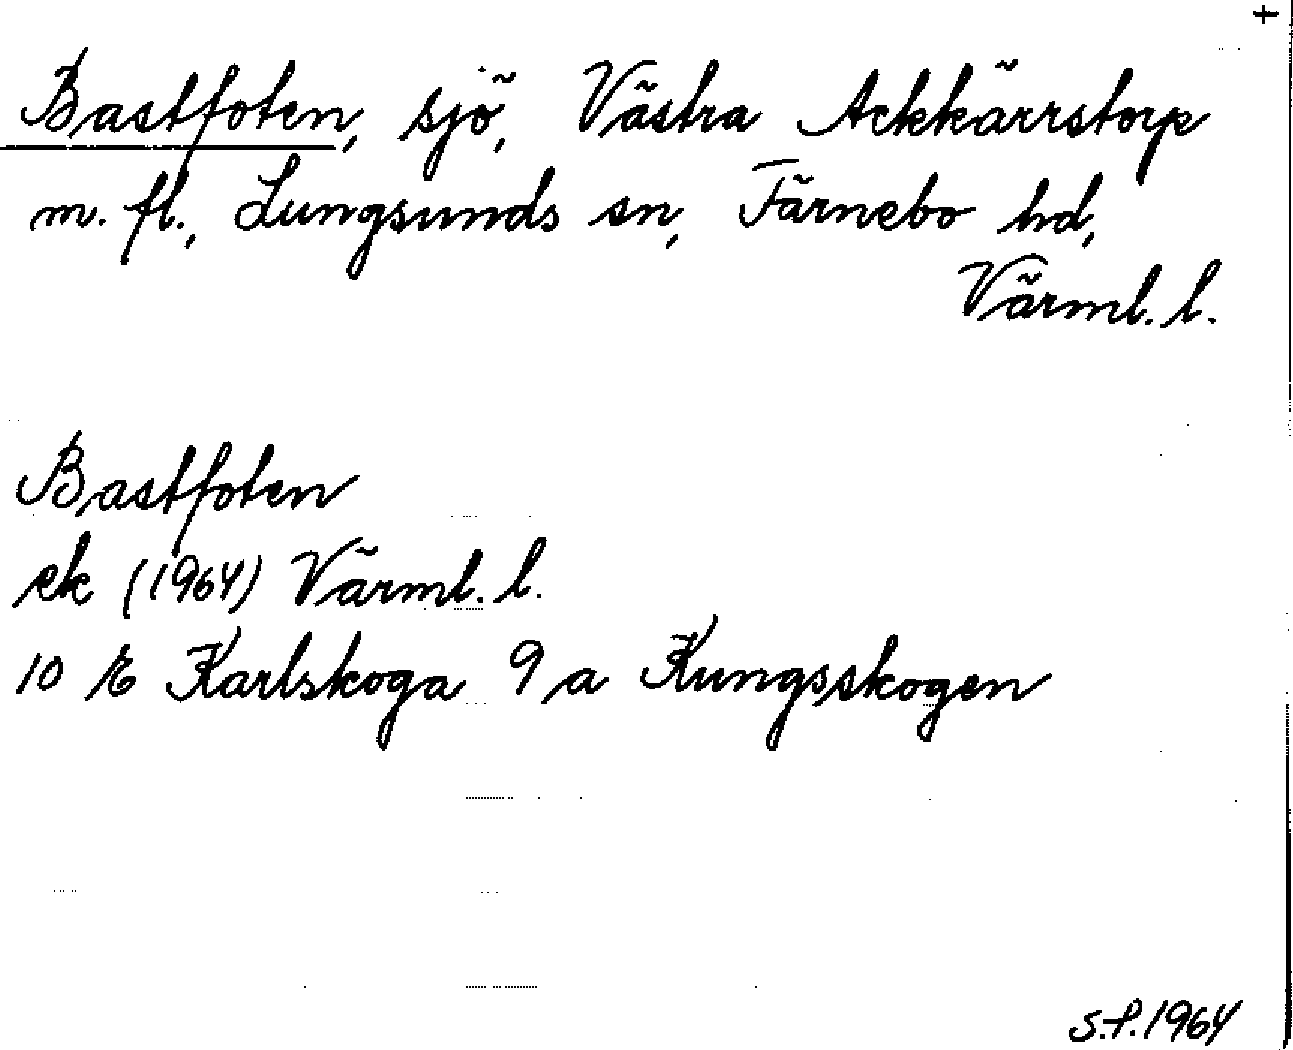 +
Bastfoten, sjö, Västra Ackkärrstorp
m. fl., Lungsunds sn, Färnebo hd,
Värml. l.
Bastfoten
ek (1964) Värml. l.
10 E Karlskoga 9 a Kungsskogen
S.P. 1964